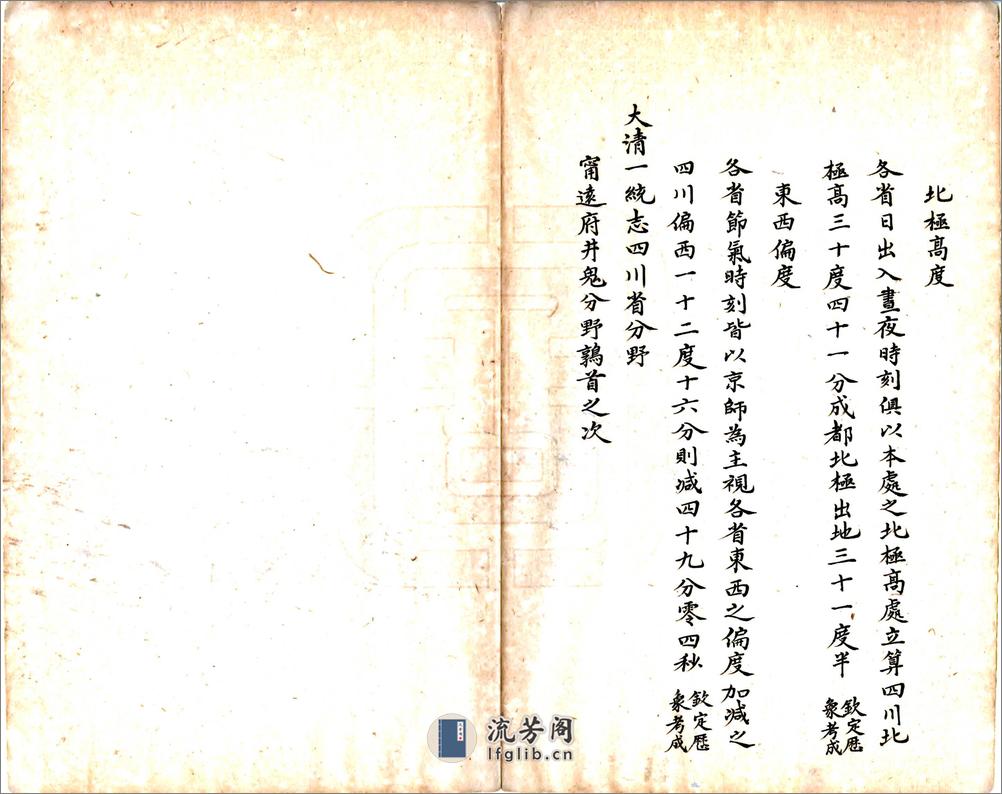 北極高度
各省日出入晝夜時刻俱以本處之北極高處立算四川北
極高三十度四十一分成都北極出地三十一度半欽定歷象考成
東西偏度
各省節氣時刻皆以京師為主視各省東西之偏度加減之
四川偏西一十二度十六分則減四十九分零四秒欽定歷象考成
大清一統志四川省分野
甯遠府井鬼分野鶉首之次
流芳阁
lfglib.cn